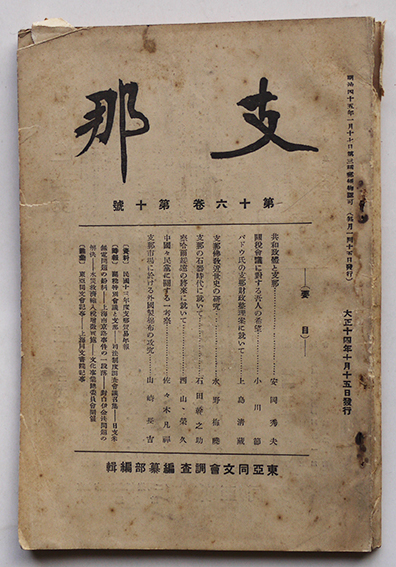 支那
第十六卷 第十號
明治四十五年一月十七日第三種郵便物認可(每月一回十五日發行)
大正十四年十月十五日發行
――(要目)――
共和政體と支那……安岡秀夫
關稅會議に對する吾人の希望……小川節
パドウ氏の支那財政整理案に就いて……上島清藏
支那佛敎近世史の研究……水野梅曉
支那の石器時代に就いて……石田幹之助
察哈爾綏遠の將來に就いて……西山榮久
中國々民黨に關する一考察……佐々木凡禪
支那市場に於ける外國製綿布の攻究……山崎長吉
(資料)民國十三年度支那貿易年報
(時報)關稅特別會議と支那
(彙集)東亞同文會記事――上海同文書院記事
東亞同文會調查編纂部編輯